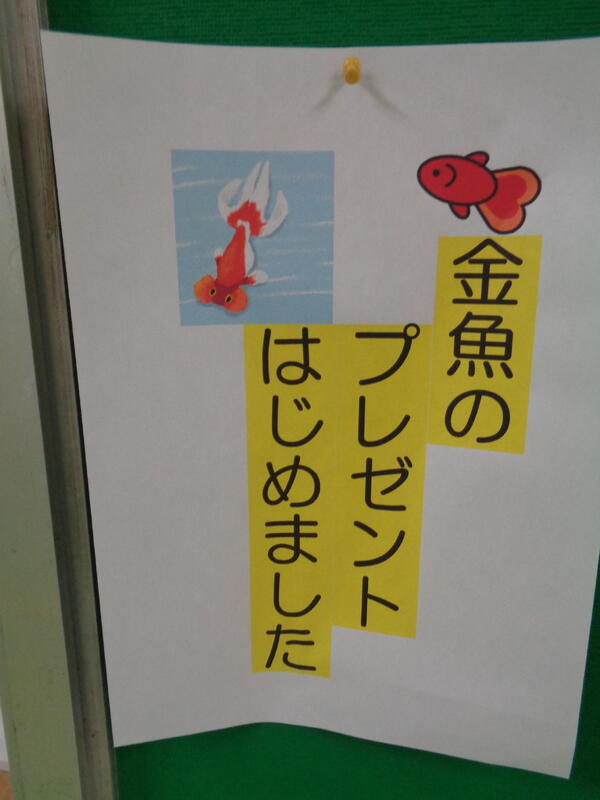 金魚の
プレゼント
はじめました